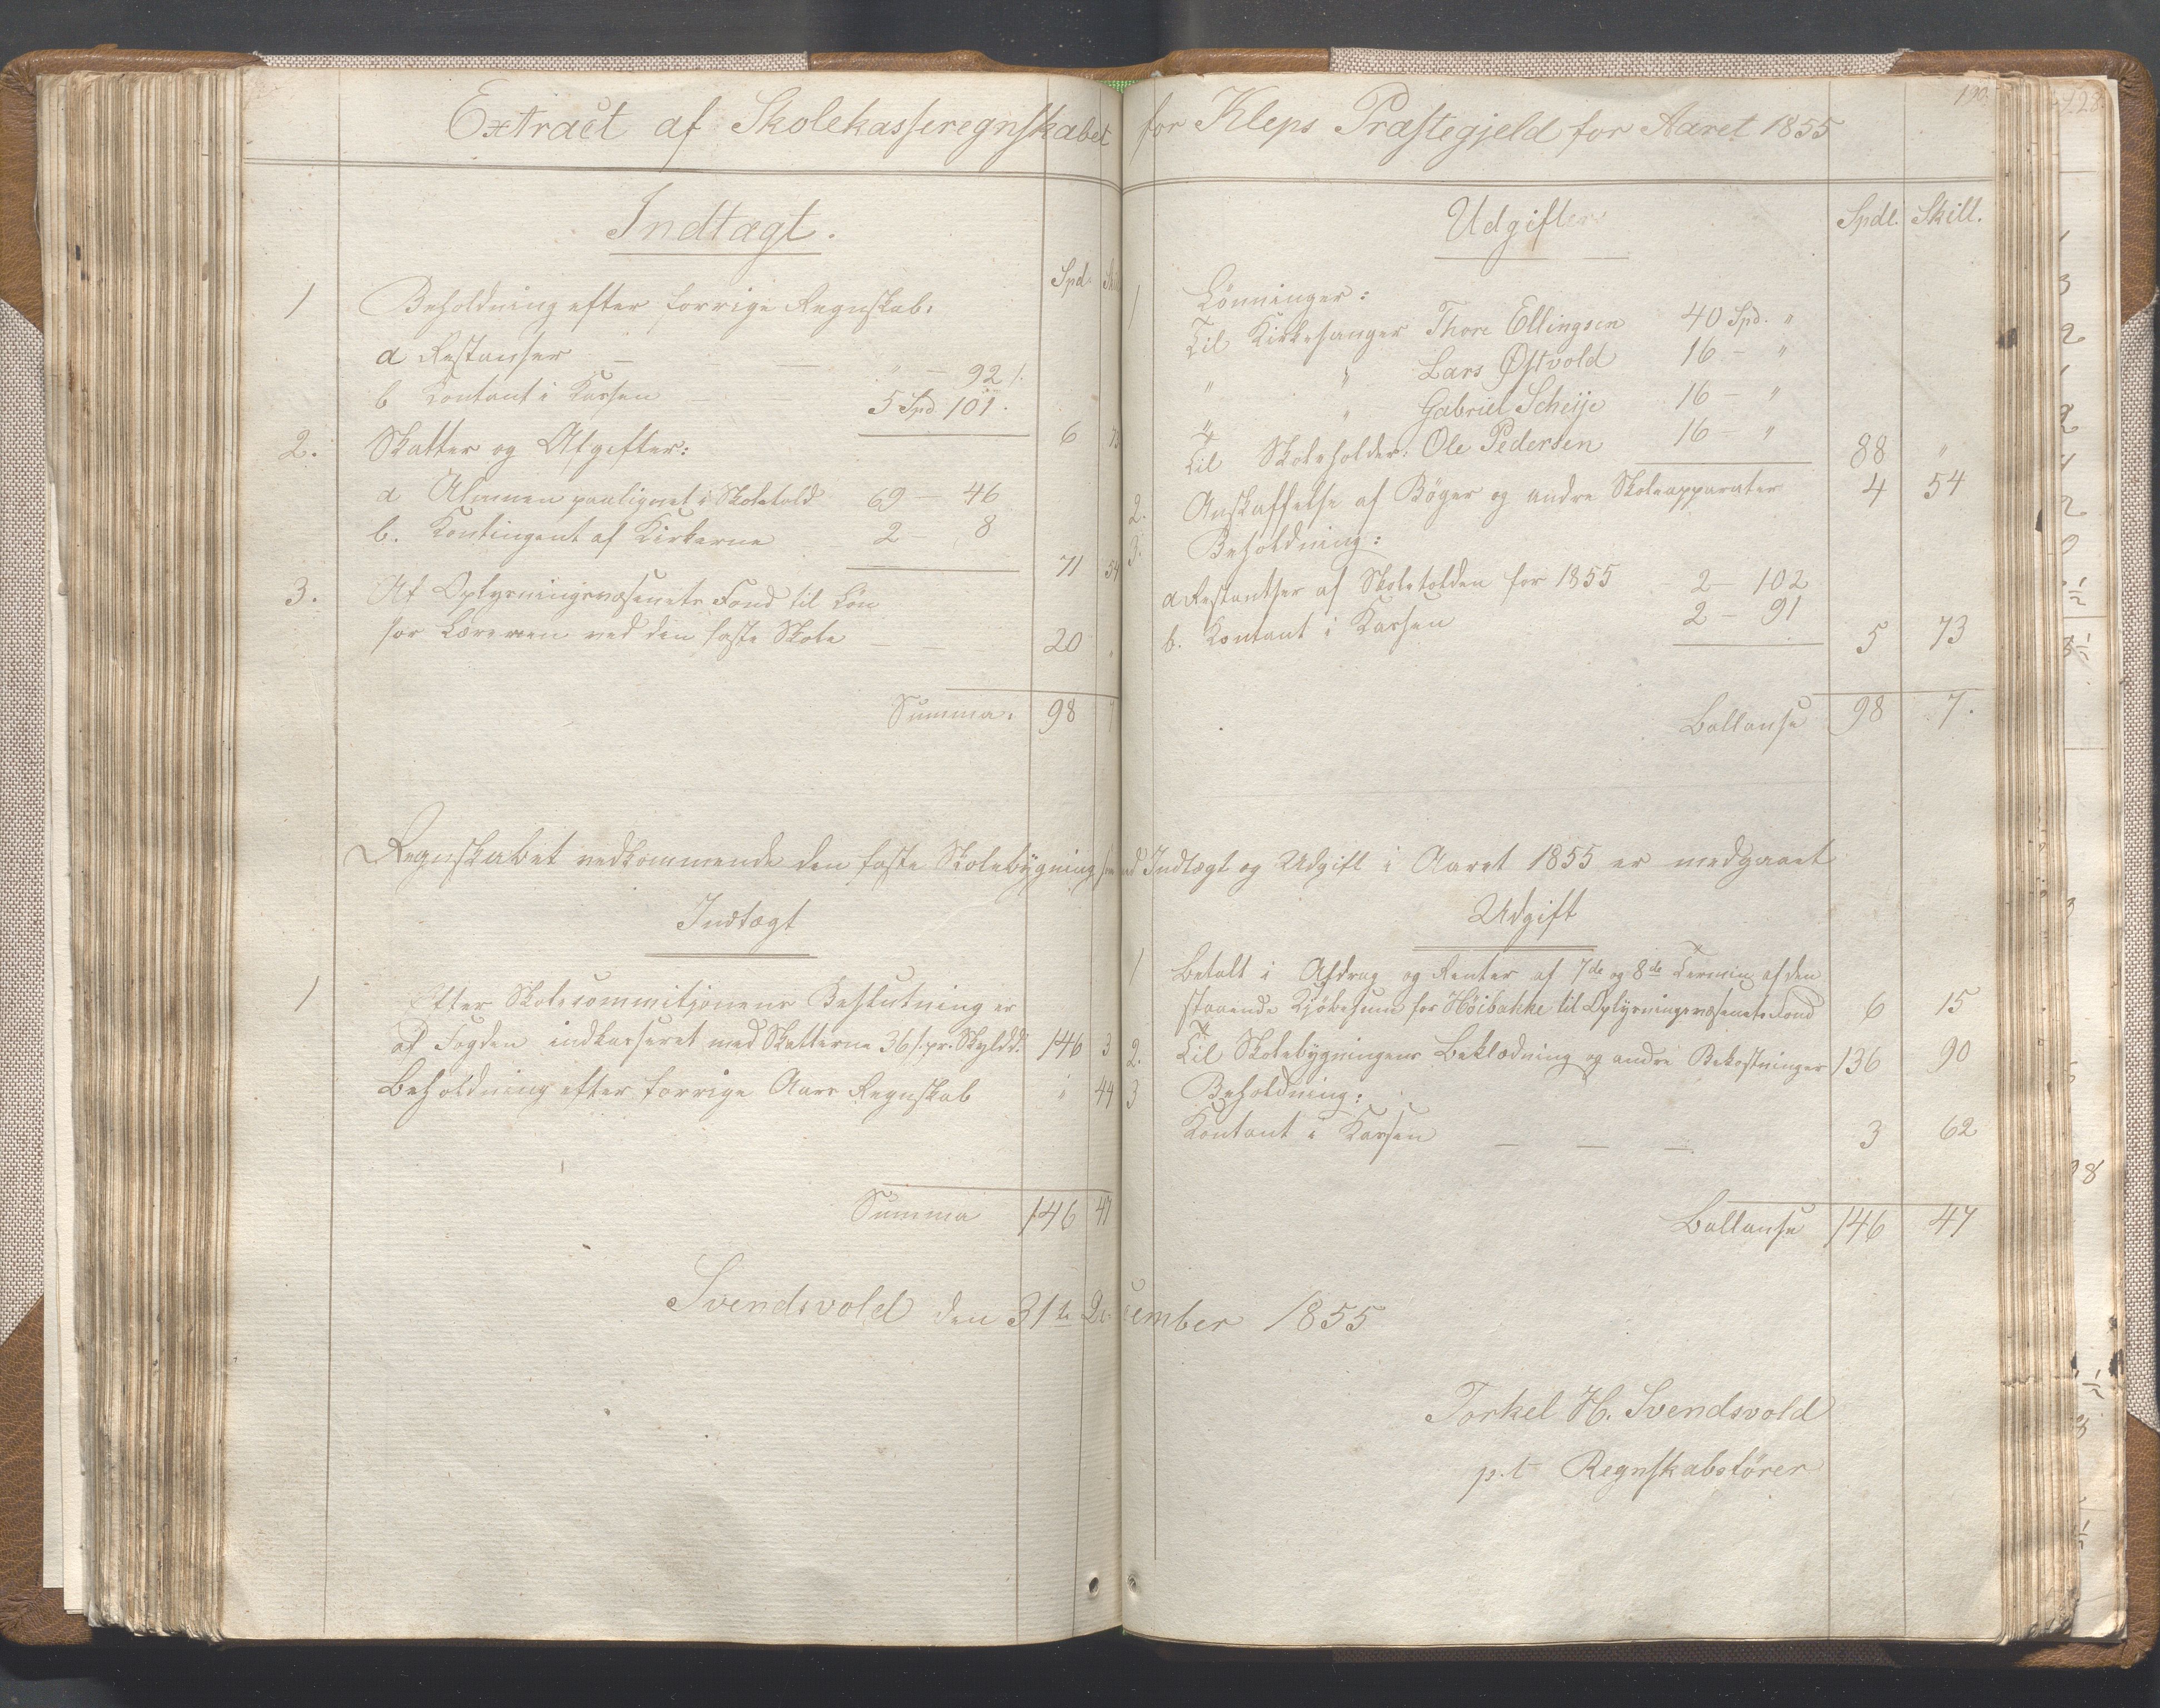 Extract af Skolekasseregnskabet for Kleps Præstegjeld for Aaret 1855
190.
Indtægt.
Spd. Skill
1 Beholdning efter forrige Regnskab:
a Restanser — — — " — 92 s.
b Contant i Kassen — — 5 Spd 101.
6 73
2. Skatter og Afgifter:
a Almuen paalignet i Skoletold 69 — 46
b. Contingent af Kirkerne — 2 — 8
71 54
3. Af Oplysningsvæsenets Fond til Løn
for Læreren ved den faste Skole — — 20 "
Summa. 98 7
Udgifter
Spdl. Skill.
1 Lønninger:
Til Kirkesanger Thore Ellingsen 40 Spd. "
" " Lars Østvold 16 — "
" " Gabriel Scheije 16 — "
Til Skoleholder: Ole Pedersen 16 — "
88 "
2. Anskaffelse af Bøger og andre Skoleapparater 4 54
3. Beholdning:
a Restantser af Skoletolden for 1855 2 — 102
b. Contant i Kassen 2 — 91
5 73
Ballanse 98 7.
Regnskabet vedkommende den faste Skolebygning Indtægt og Udgift i Aaret 1855 er medgaaet
Indtægt
1 Efter Skolecommitjonens Beslutning er
af Fogden indkasseret med Skatterne 36 s. pr. Skyldd. 146 3
Beholdning efter forrige Aars Regnskab " 44
Summa 146 47
Udgift
1 Betalt i Afdrag og Renter af 7de og 8de Termin af den
staaende Kjøbesum for Høibakke til Oplysningsvæsenets Fond 6 15
2. Til Skolebygningens Beklædning og andre Bekostninger 136 90
3 Beholdning:
Contant i Kassen — — — 3 62
Ballanse 146 47
Svendsvold den 31te December 1855
Torkel H. Svendsvold
p.t. Regnskabsfører